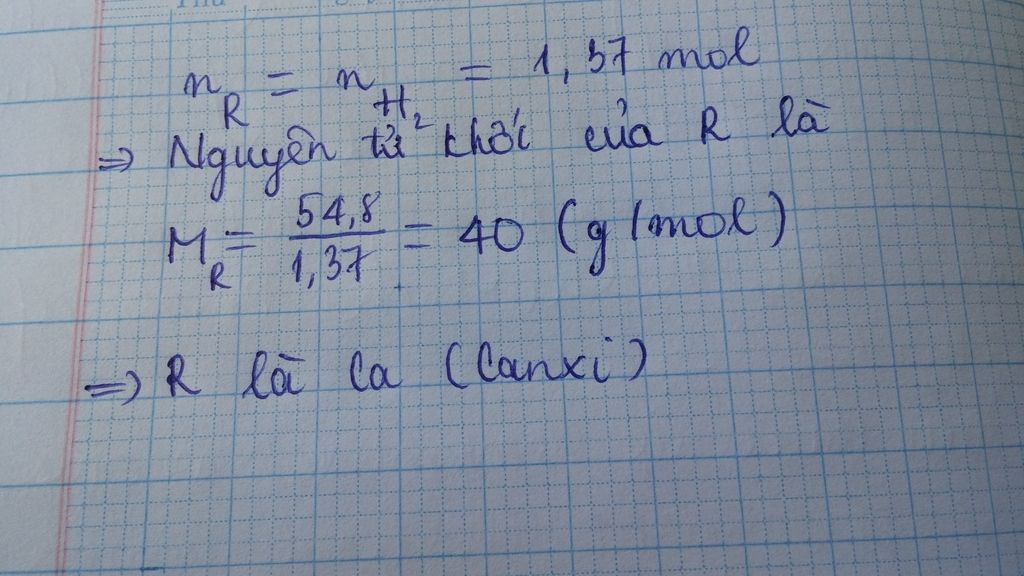 n_R = n_H₂ = 1,37 mol
⇒ Nguyên tử khối của R là
M_R = 54,8/1,37 = 40 (g/mol)
⇒ R là Ca (Canxi)